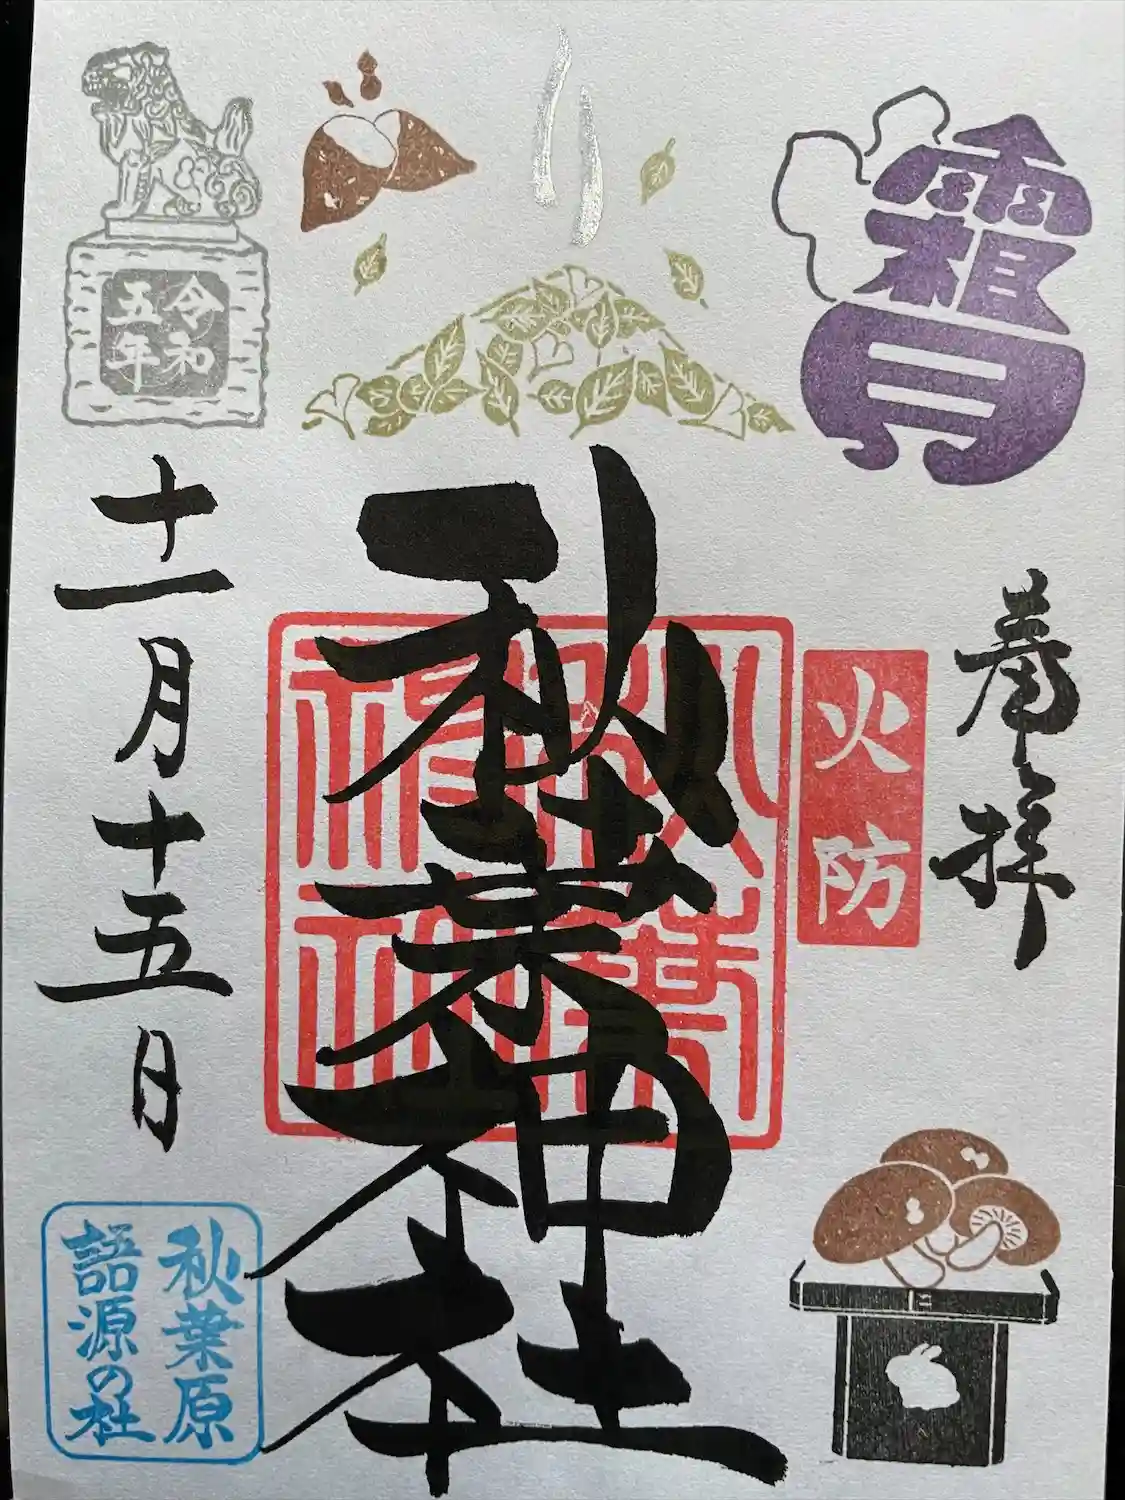 霜月
奉拝
火防
秋葉神社
秋葉
神社
令和
五年
十一月十五日
秋葉原
語源の社